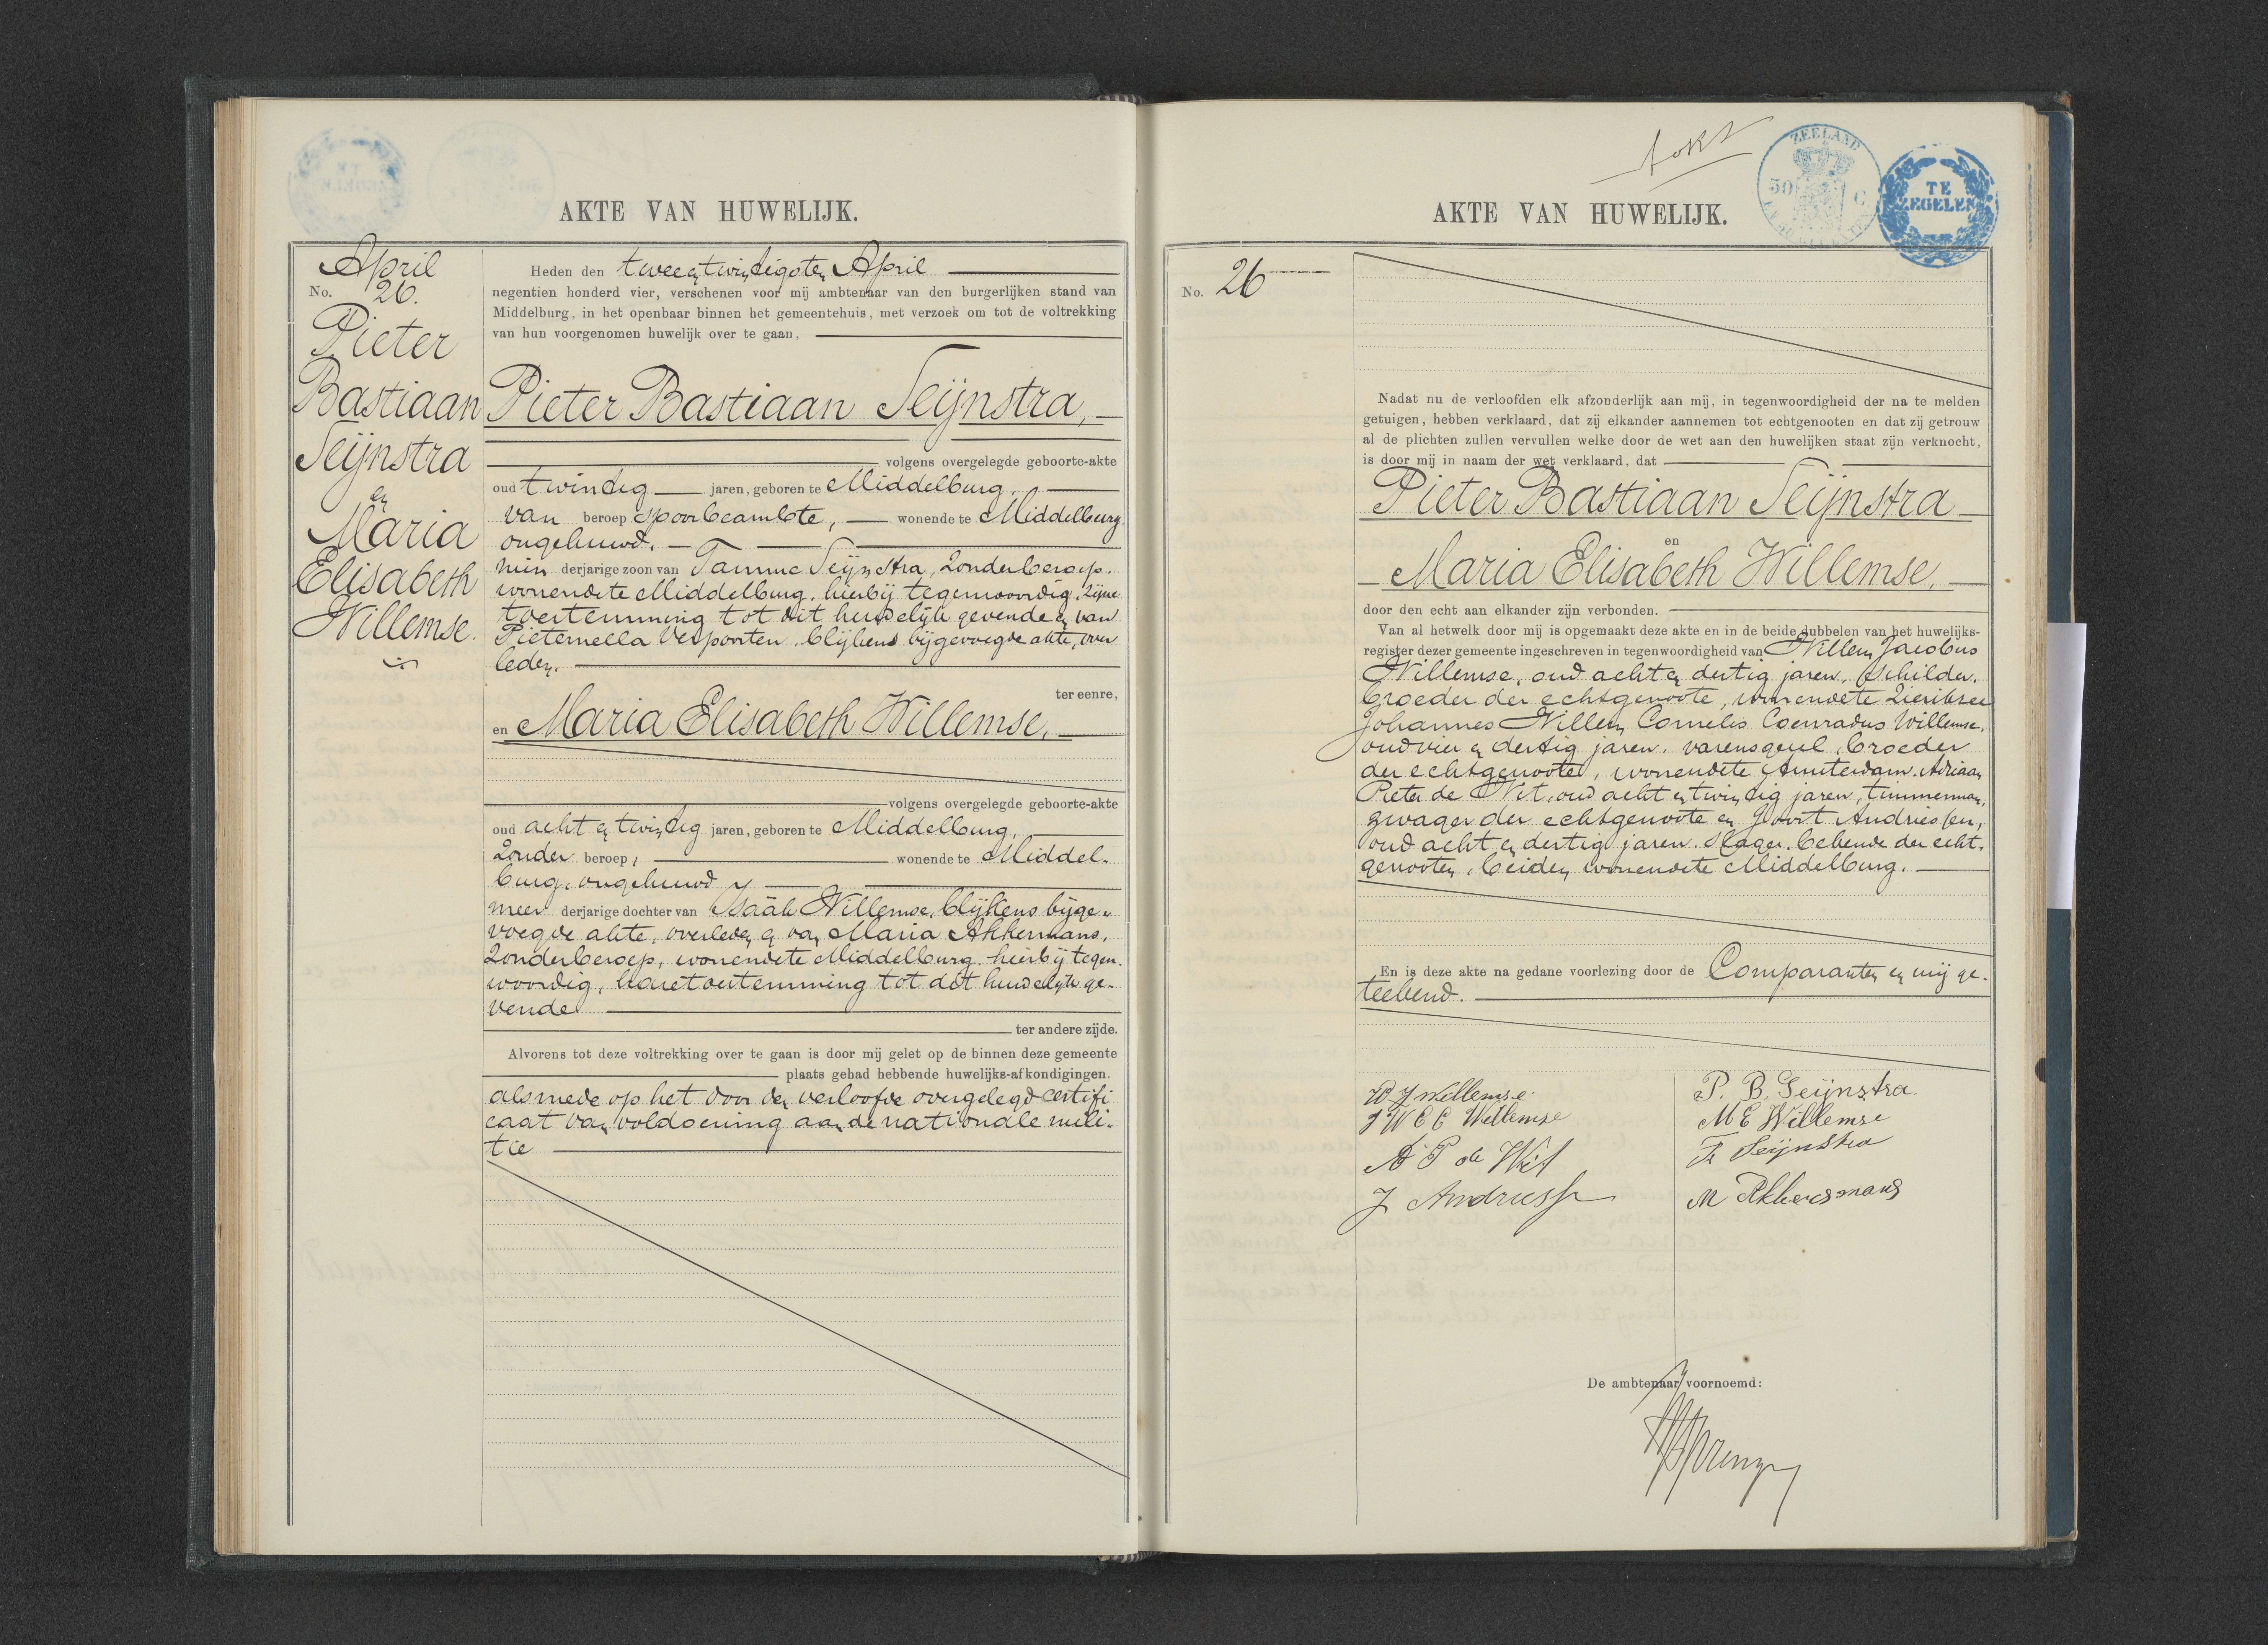 AKTE VAN HUWELIJK.
April
No. 26.
Pieter
Bastiaan
Seijnstra
en
Maria
Elisabeth
Willemse.
Heden den tweeentwintigsten April
negentien honderd vier, verschenen voor mij ambtenaar van den burgerlijken stand van
Middelburg, in het openbaar binnen het gemeentehuis, met verzoek om tot de voltrekking
van hun voorgenomen huwelijk over te gaan,
Pieter Bastiaan Seijnstra,
volgens overgelegde geboorte-akte
oud twintig jaren, geboren te Middelburg,
van beroep spoorbeambte, wonende te Middelburg
ongehuwd.
min derjarige zoon van Tamme Seijnstra, zonder beroep.
wonende te Middelburg, hierbij tegenwoordig, zijne
toestemming tot dit huwelijk gevende en van
Pieternella Verpoorten, blijkens bijgevoegde akte, over
leden.
ter eenre,
en Maria Elisabeth Willemse,
volgens overgelegde geboorte-akte
oud acht en twintig jaren, geboren te Middelburg,
zonder beroep, wonende te Middel-
burg, ongehuwd
meer derjarige dochter van Isaäk Willemse, blijkens bijge-
voegde akte, overleden en van Maria Akkermans,
zonder beroep, wonende te Middelburg hierbij tegen-
woordig, hare toestemming tot dit huwelijk ge-
vende
ter andere zijde.
Alvorens tot deze voltrekking over te gaan is door mij gelet op de binnen deze gemeente
plaats gehad hebbende huwelijks-afkondigingen.
alsmede op het door den verloofde overgelegd certifi
caat van voldoening aan de nationale mili-
tie
ZEELAND
50 C
TE
ZEGELEN
AKTE VAN HUWELIJK.
No. 26
Nadat nu de verloofden elk afzonderlijk aan mij, in tegenwoordigheid der na te melden
getuigen, hebben verklaard, dat zij elkander aannemen tot echtgenooten en dat zij getrouw
al de plichten zullen vervullen welke door de wet aan den huwelijken staat zijn verknocht,
is door mij in naam der wet verklaard, dat
Pieter Bastiaan Seijnstra
en
Maria Elisabeth Willemse,
door den echt aan elkander zijn verbonden.
Van al hetwelk door mij is opgemaakt deze akte en in de beide dubbelen van het huwelijks-
register dezer gemeente ingeschreven in tegenwoordigheid van Willem Jacobus
Willemse, oud acht en dertig jaren, schilder.
broeder der echtgenoote, wonende te Zierikzee
Johannes Willem Cornelis Coenradus Willemse,
oud vier en dertig jaren, varensgezel, broeder
der echtgenoote, wonende te Amsterdam. Adriaan
Pieter de Wit, oud acht en twintig jaren, timmerman,
zwager der echtgenoote en Joost Andriessen,
oud acht en dertig jaren. slager. bekende der echt-
genooten, beiden wonende te Middelburg.
En is deze akte na gedane voorlezing door de Comparanten en mij ge-
teekend.
W J Willemse
J W C C Willemse
A P de Wit
J Andriesse
P. B. Seijnstra.
M E Willemse
T Seijnstra
M Akkersmans
De ambtenaar voornoemd: